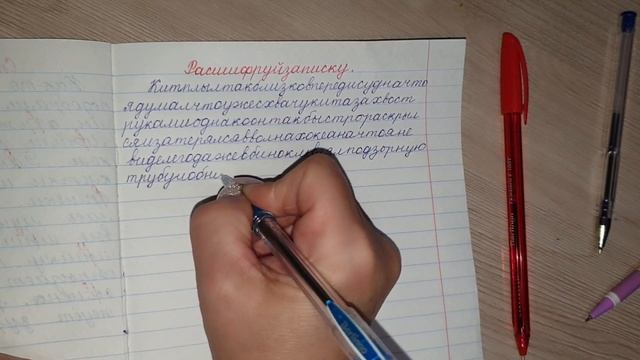 Расшифруйзаписку.
Китплылтакблизковпередисудначто
ядумалчтоужесхвачукитазахвост
рукамиоднакоонтакбыстрораскрыл
сяизатерялсявволнахокеаначтояне
виделегодажевбинокль
подзорную
трубу